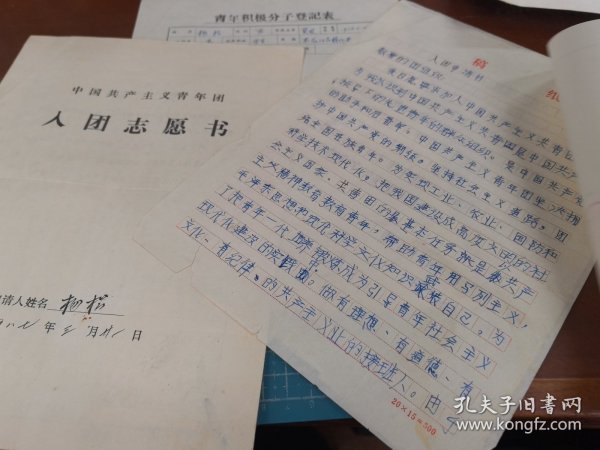 青年积极分子登記表
中国共产主义青年团
入团志愿书
请人姓名 杨桦
年 月 日
稿
纸
入团申请书
敬爱的团组织:
我自愿要求加入中国共产主义青年团
中国共产主义青年团是中国共产
先进青年的群众组织,是中国共产党
的助手和后备军。中国共产主义青年团坚决拥
护中国共产党的纲领。坚持社会主义道路。团
结全国各族青年。为实现工业、农业、国防和
科学技术现代化。把我国建设成高度文明的社
会主义国家,共青团的最基本任务就是以共产
主义精神教育青年,帮助青年用马列主义,
毛泽东思想和现代科学文化知识武装自己。为
了把青年一代培养锻炼成为引导青年社会主义
现代化建设的实践中。做有理想、有道德、有
文化、有纪律、的共产主义的接班人。由
20×15=300
孔夫子旧书网
www.kongfz.com